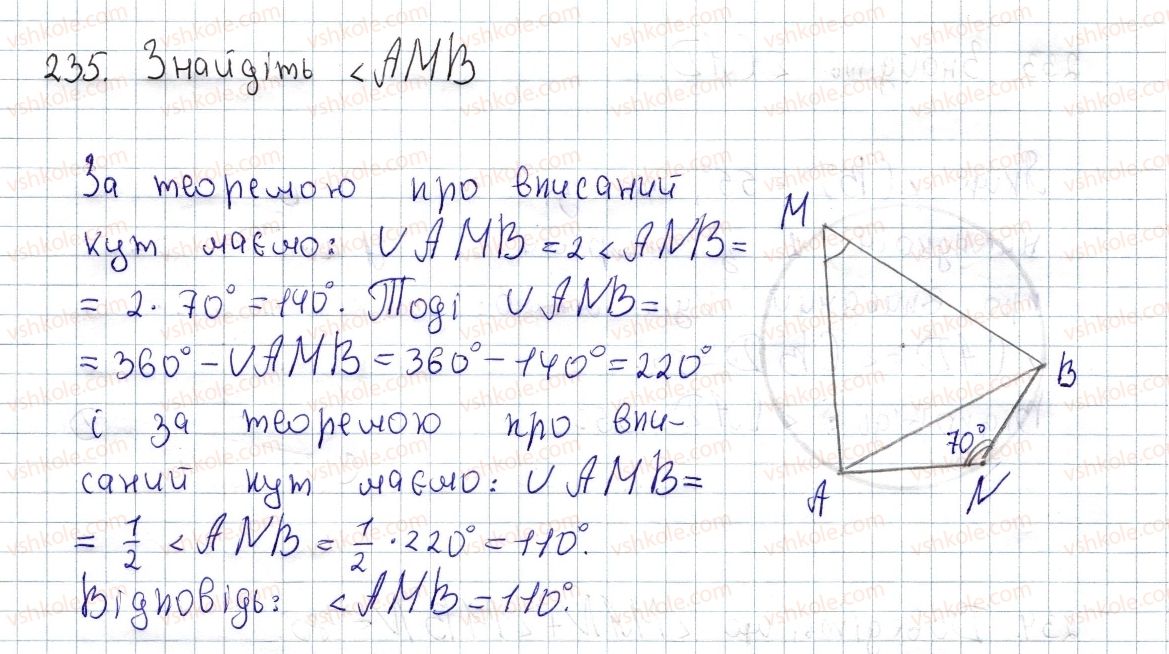 235. Знайдіть <AMB
За теоремою про вписаний
кут маємо: ∪AMB = 2 <ANB =
= 2 · 70° = 140°. Тоді ∪ANB =
= 360° - ∪AMB = 360° - 140° = 220°
і за теоремою про впи-
саний кут маємо: ∪AMB =
= 1/2 <ANB = 1/2 · 220° = 110°.
Відповідь: <AMB = 110°.
M
B
70°
A
N
vshkole.com